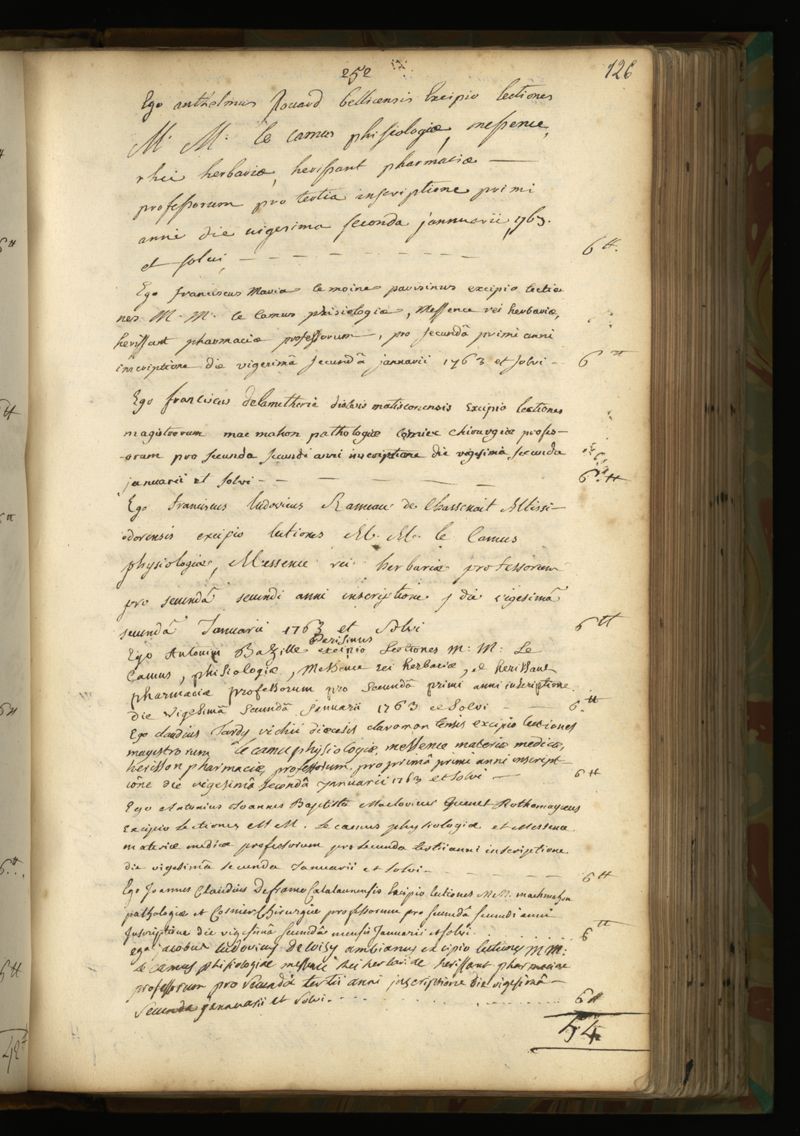 252
126
Ego anthelmus Rouard bellicensis Excipio lectiones
M. M. le camus phisiologiæ, messence,
rhei herbariæ, herissant pharmatiæ —
professorum pro tertia inscriptione primi
anni die vigesima seconda jannuarii 1763.
et solvi — — — — — — — 6 ₶.
Ego franciscus Maria le moine parisinus excipio lectio
nes M. M. le Camus phisiologiæ, Messence rei herbariæ,
herissant pharmaciæ professorum, pro secundâ primi anni
inscriptione die vigesimâ secundâ januarii 1763 et solvi — 6 ₶
Ego franciscus delametherie matisconensis excipio lectiones
magistrorum mac mahon pathologiæ chirurgiæ profes-
-orum pro secunda secundi anni inscriptione die vigesimâ secunda
januarii et solvi — — — — — 6 ₶
Ego Franciscus ludovicus Rameau de Altissi-
odorensis excipio lectiones M. M. le Camus
physiologiæ, Messence rei herbariæ professorum
pro secundâ secundi anni inscriptione die vigesimâ
secundâ Januarii 1763 et solvi 6 ₶
Parisinus
Ego Antonius Bazille excipio Lectiones M: M: Le
Camus, phisiologiæ, Messence rei herbaciæ, et herissant
pharmaciæ professorum pro secundâ primi anni inscriptione
die vigesimâ secundâ Januarii 1763 et Solvi — — 6 ₶
Ego claudius Tardy vichii diocesis claromontensis excipio lectiones
magistrorum le camus physiologiæ, messence materiæ medicæ,
herisson pharmaciæ, professorum, pro primâ primi anni inscript-
ione die vigesimâ secondâ januarii 1763 et solvi — 6 ₶
Ego Antonius Joannes Baptista Maclovius Rothomagæus
Excipio Lectiones M M. Le camus physiologiæ et Messence
materiæ medicæ professorum pro secunda tertii anni inscriptione
die vigesimâ secunda Januarii et solvi — — — 6 ₶
Ego Joannes Claudius Deframe Catalaunensis Excipio lectiones M. M. machmahon
pathologiæ et Cosnier Chirurgiæ professorum pro secundâ secundi anni
Inscriptione die vigesimâ secundâ mensis Januarii et solvi . . . . 6 ₶
ego Jacobus ludovicus Dewisy ambianus excipio lectiones M M:
le camus phisiologiæ messence rhei herbariæ herissant pharmaciæ
professorum pro secundâ tertii anni inscriptione die vigesimâ —
Secunda jannuarii et solvi . . . . . . 6 ₶
54